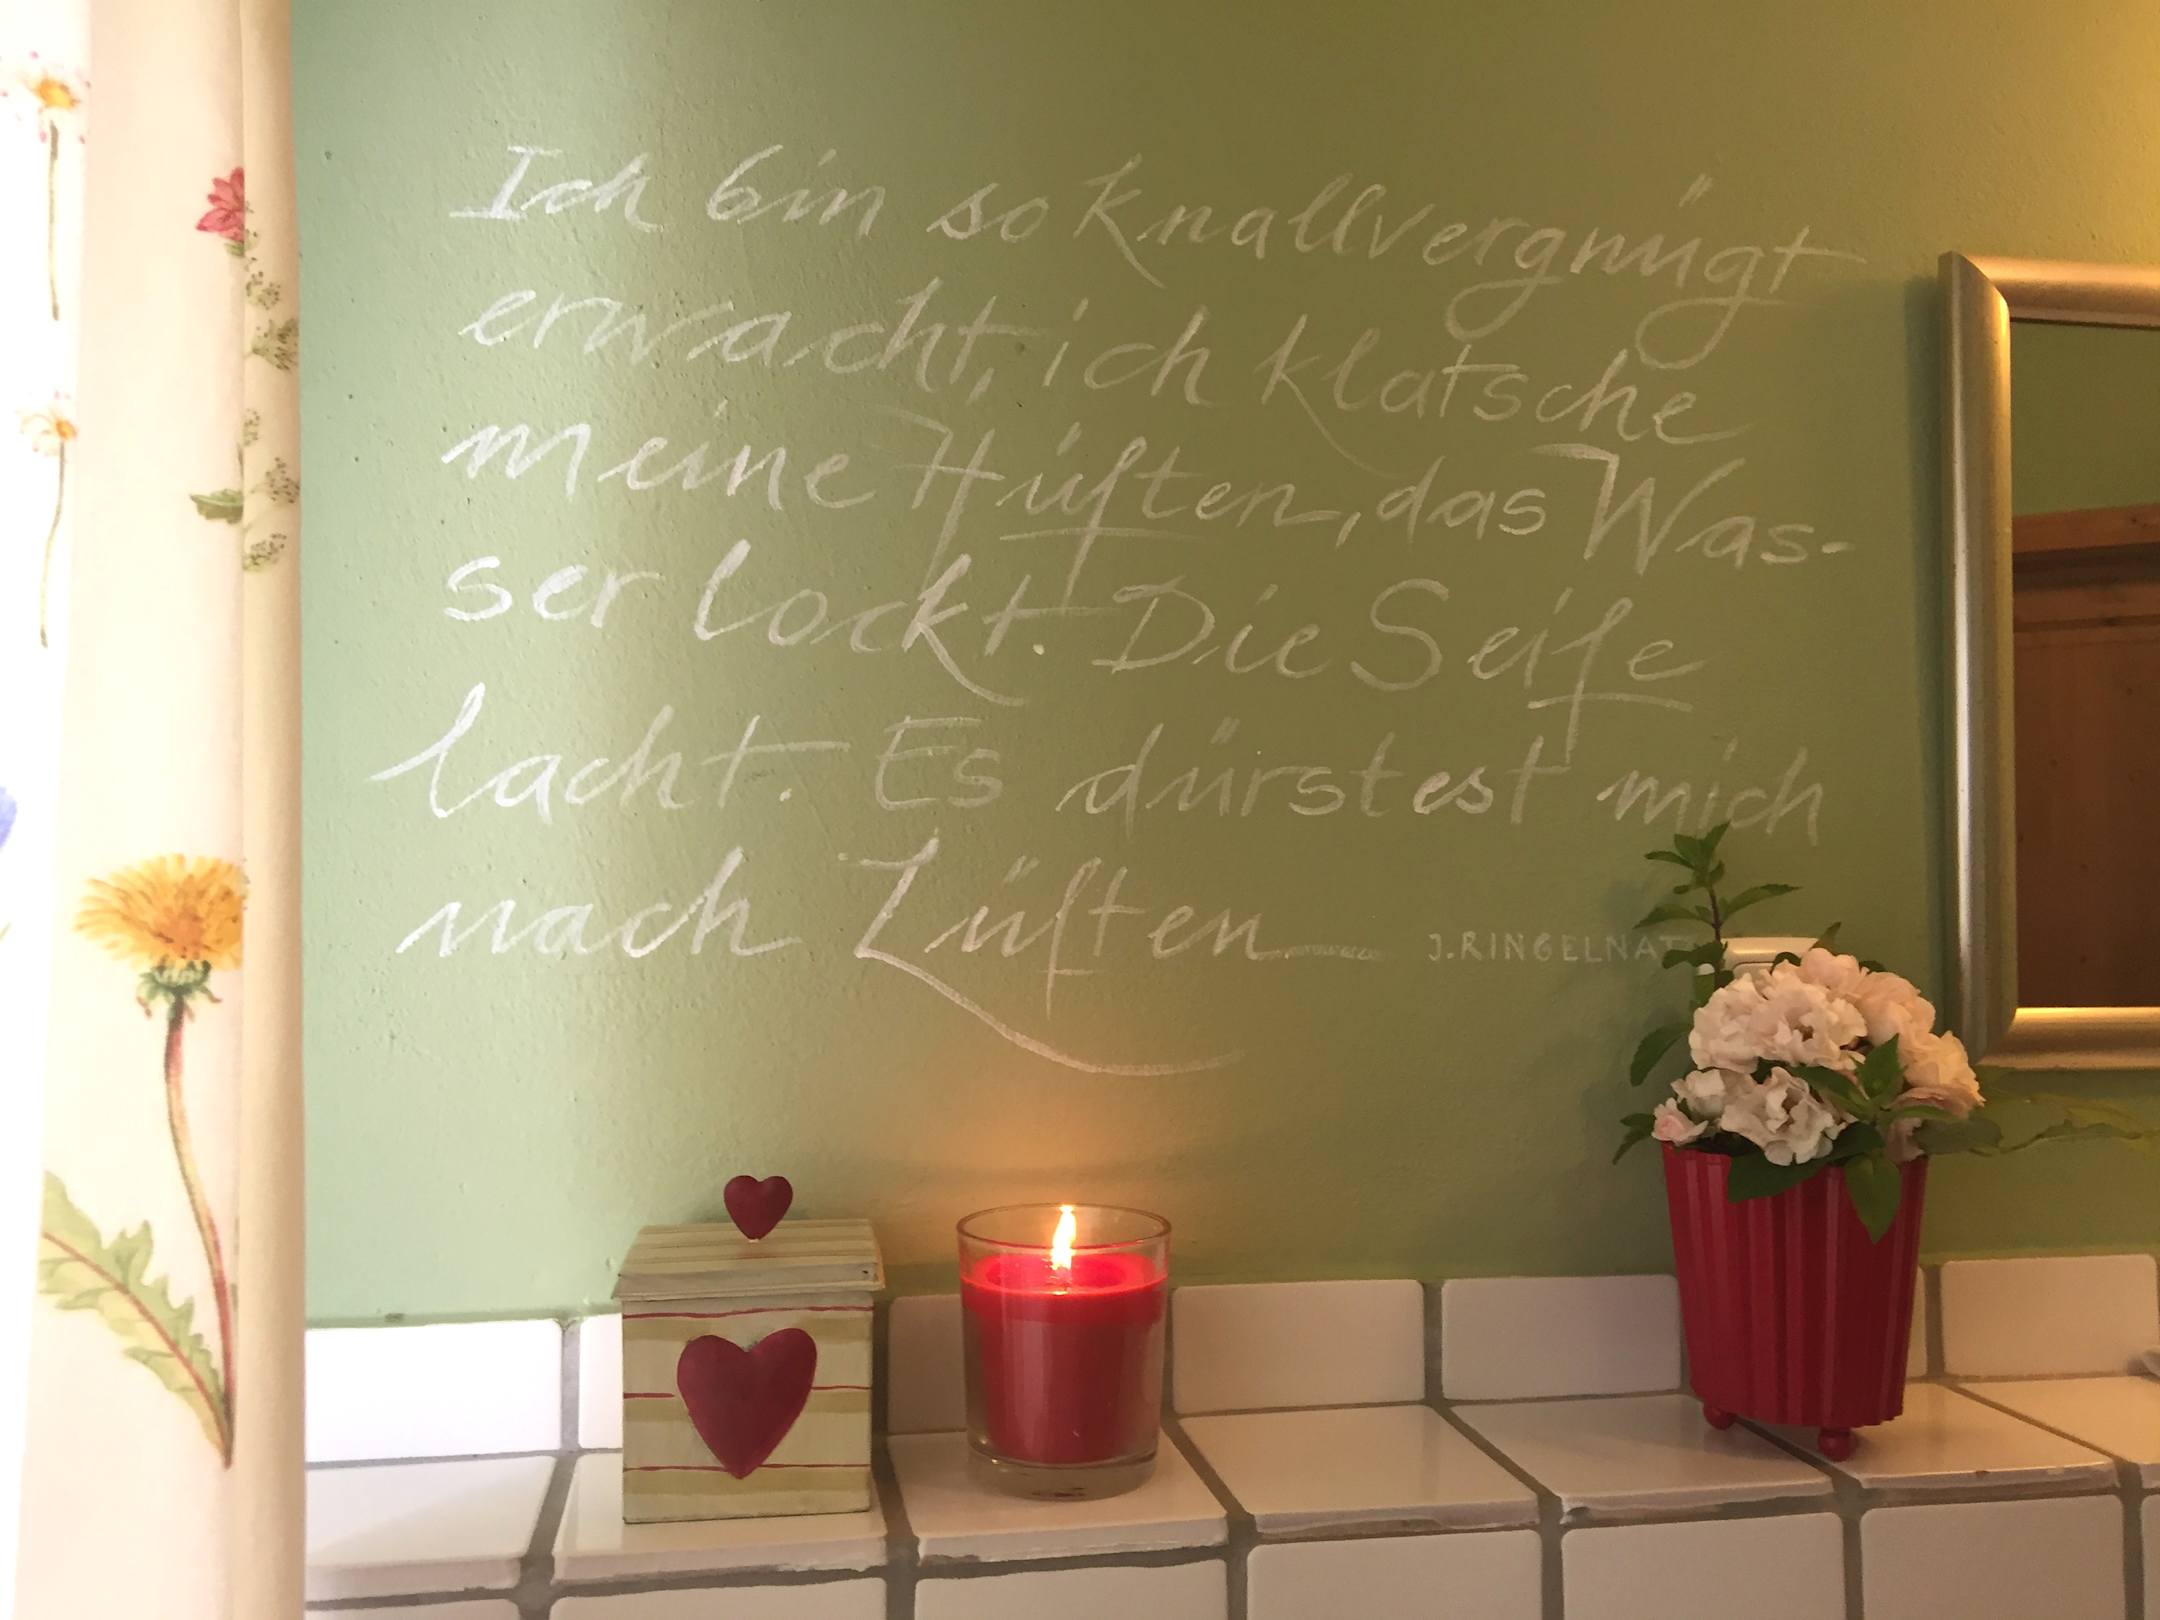 Ich bin so knallvergnügt
erwacht, ich klatsche
meine Hüften, das Was-
ser lockt. Die Seife
lacht. Es dürstest mich
nach Lüften
J. RINGELNAT